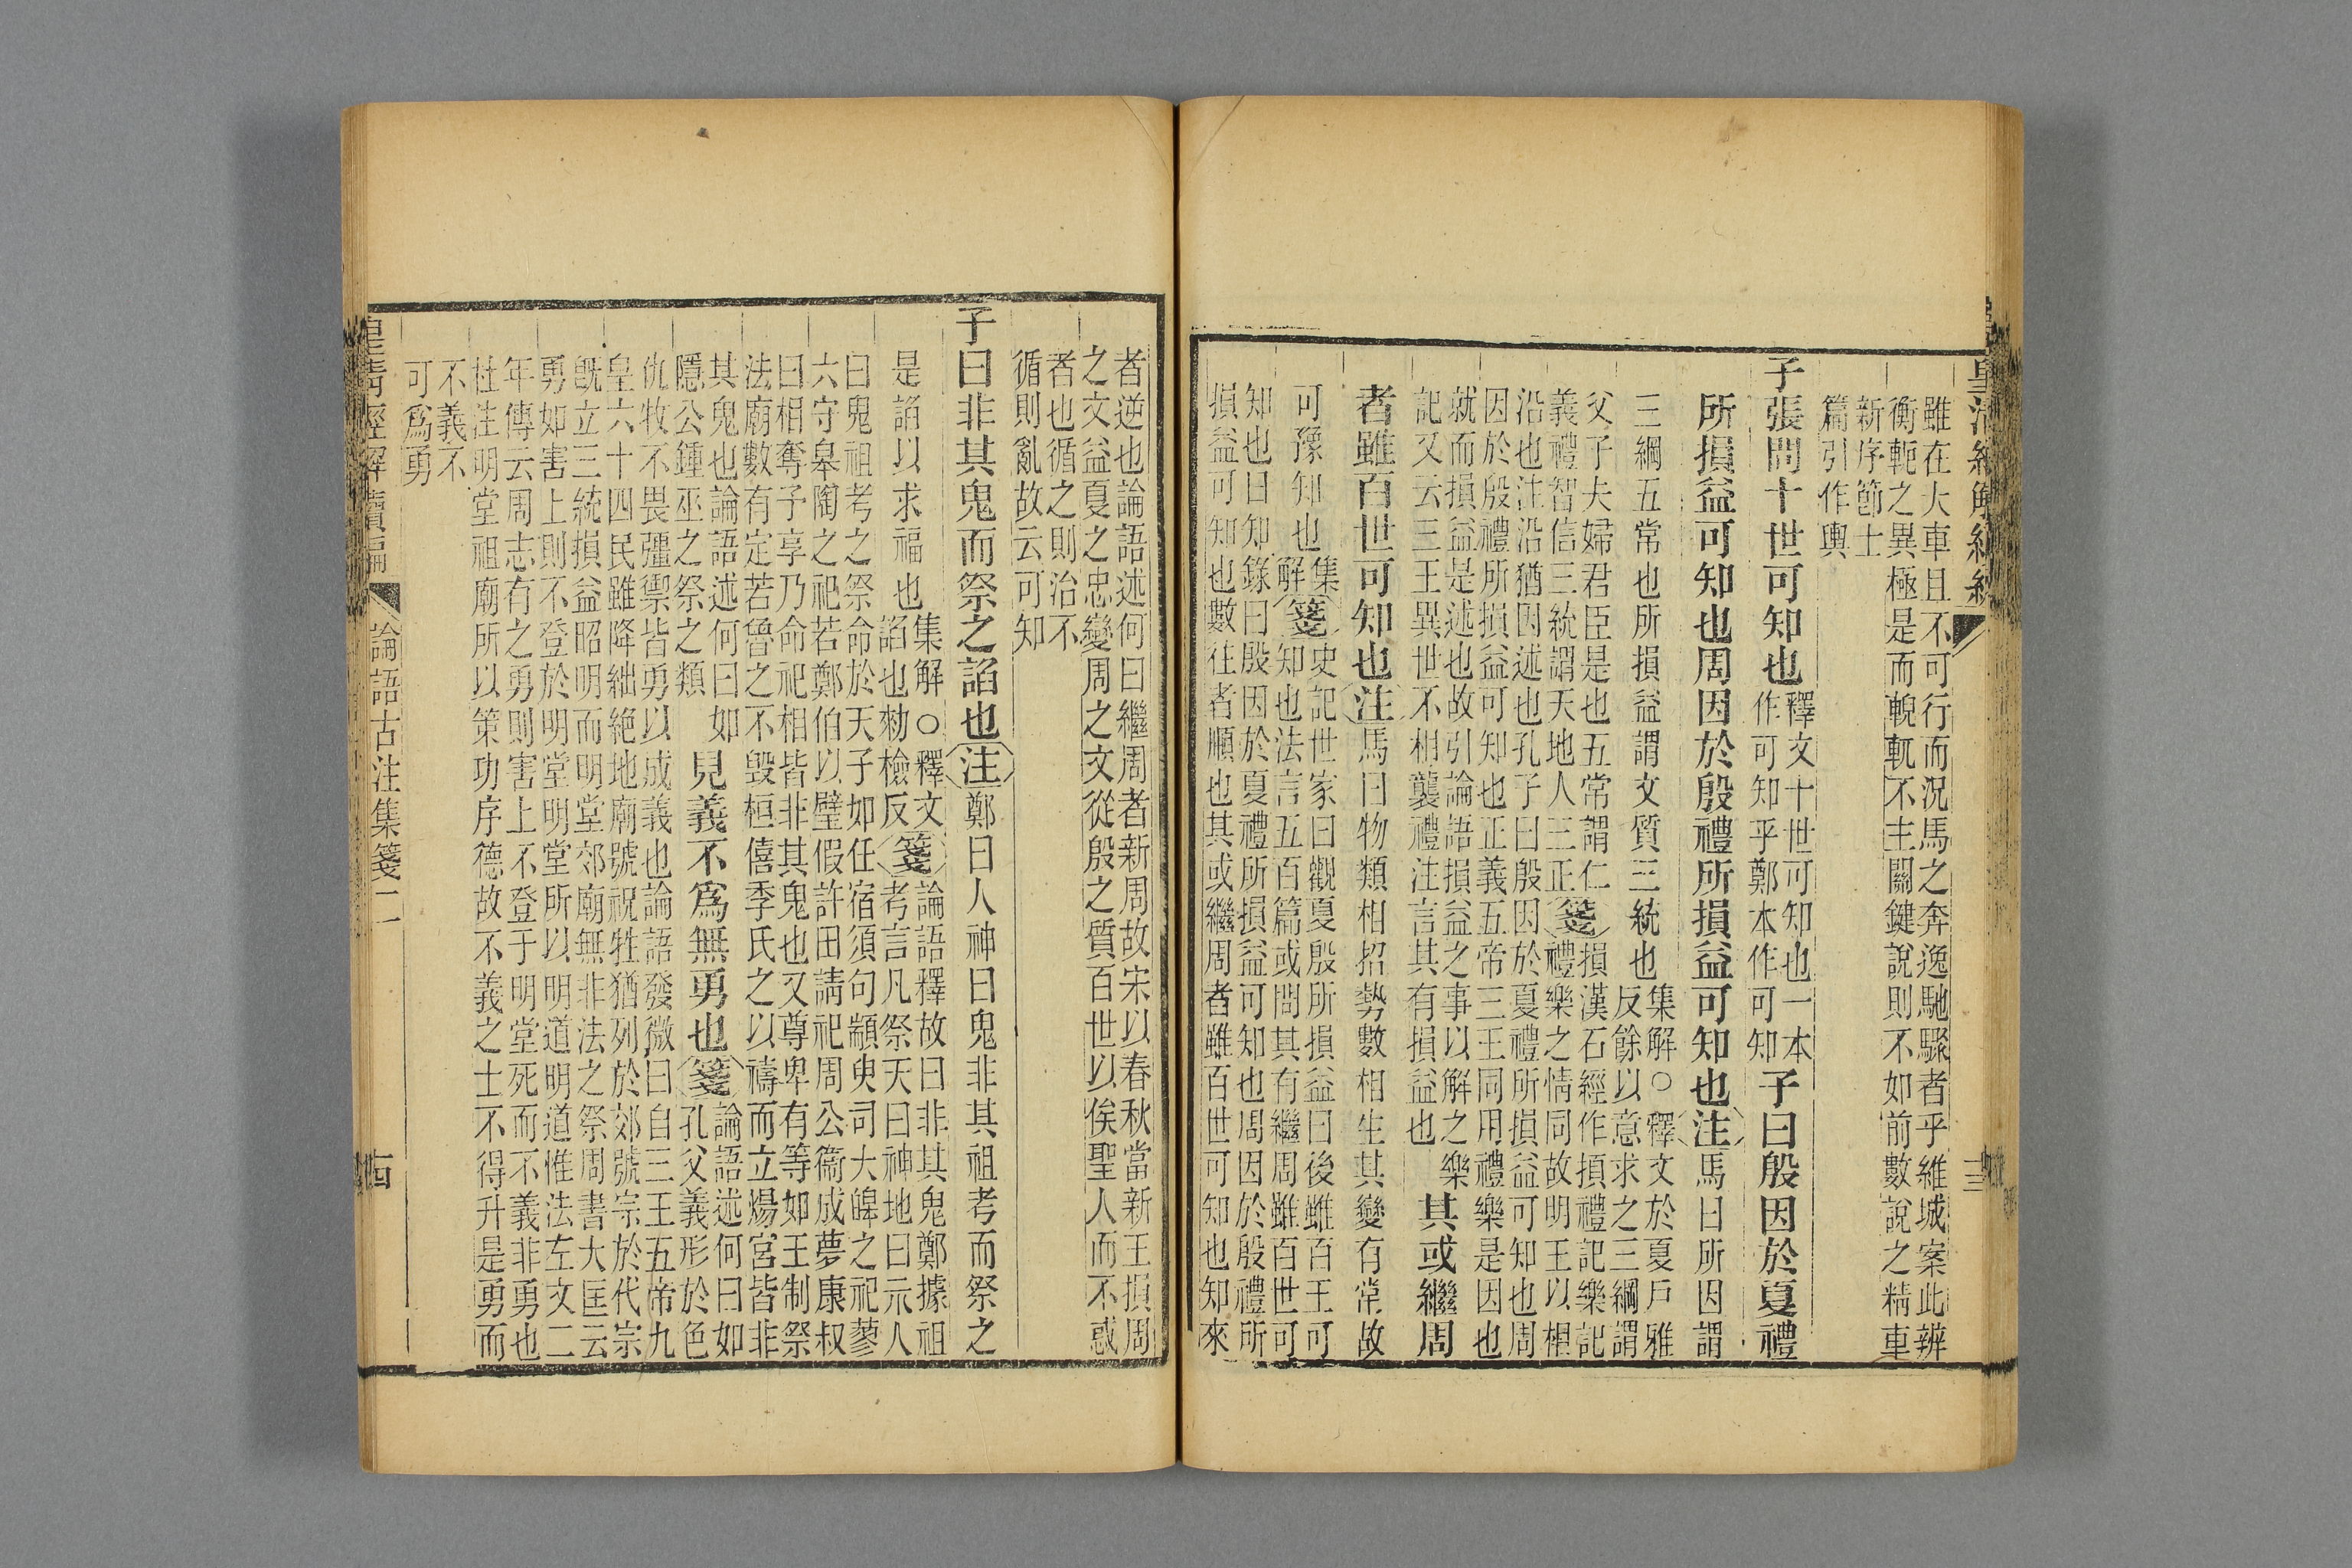 雖在大車且不可行而況馬之奔逸馳驟者乎維城案此辨
衡軛之異極是而輗軏不主關鍵說則不如前數說之精車
新序節士
篇引作輿
子張問十世可知也
釋文十世可知也一本
作可知乎鄭本作可知
子曰殷因於夏禮
所損益可知也周因於殷禮所損益可知也注馬曰所因謂
三綱五常也所損益謂文質三統也
集解○釋文於夏戶雅
反餘以意求之三綱謂
父子夫婦君臣是也五常謂仁
義禮智信三統謂天地人三正
箋
損漢石經作損禮記樂記
禮樂之情同故明王以相
沿也注沿猶因述也孔子曰殷因於夏禮所損益可知也周
因於殷禮所損益可知也正義五帝三王同用禮樂是因也
就而損益是述也故引論語損益之事以解之樂
記又云三王異世不相襲禮注言其有損益也
其或繼周
者雖百世可知也注馬曰物類相招勢數相生其變有常故
可豫知也
集
解
箋
史記世家曰觀夏殷所損益曰後雖百王可
知也法言五百篇或問其有繼周雖百世可
知也日知錄曰殷因於夏禮所損益可知也周因於殷禮所
損益可知也數往者順也其或繼周者雖百世可知也知來
者逆也論語述何曰繼周者新周故宋以春秋當新王損周
之文益夏之忠變周之文從殷之質百世以俟聖人而不惑
者也循之則治不
循則亂故云可知
子曰非其鬼而祭之諂也注鄭曰人神曰鬼非其祖考而祭之
是諂以求福也
集解○釋文
諂也勑檢反
箋
論語釋故曰非其鬼鄭據祖
考言凡祭天曰神地曰示人
曰鬼祖考之祭命於天子如任宿須句顓臾司大皞之祀蓼
六守皋陶之祀若鄭伯以璧假許田請祀周公衞成夢康叔
曰相奪予享乃命祀相皆非其鬼也又尊卑有等如王制祭
法廟數有定若魯之不毀桓僖季氏之以禱而立煬宮皆非
其鬼也論語述何曰如
隱公鍾巫之祭之類
見義不爲無勇也箋
論語述何曰如
孔父義形於色
仇牧不畏彊禦皆勇以成義也論語發微曰自三王五帝九
皇六十四民雖降絀絕地廟號祝牲猶列於郊號宗於代宗
旣立三統損益昭明而明堂郊廟無非法之祭周書大匡云
勇如害上則不登於明堂明堂所以明道明道惟法左文二
年傳云周志有之勇則害上不登于明堂死而不義非勇也
杜注明堂祖廟所以策功序德故不義之士不得升是勇而
不義不
可爲勇
皇清經解續編
論語古注集箋二
四